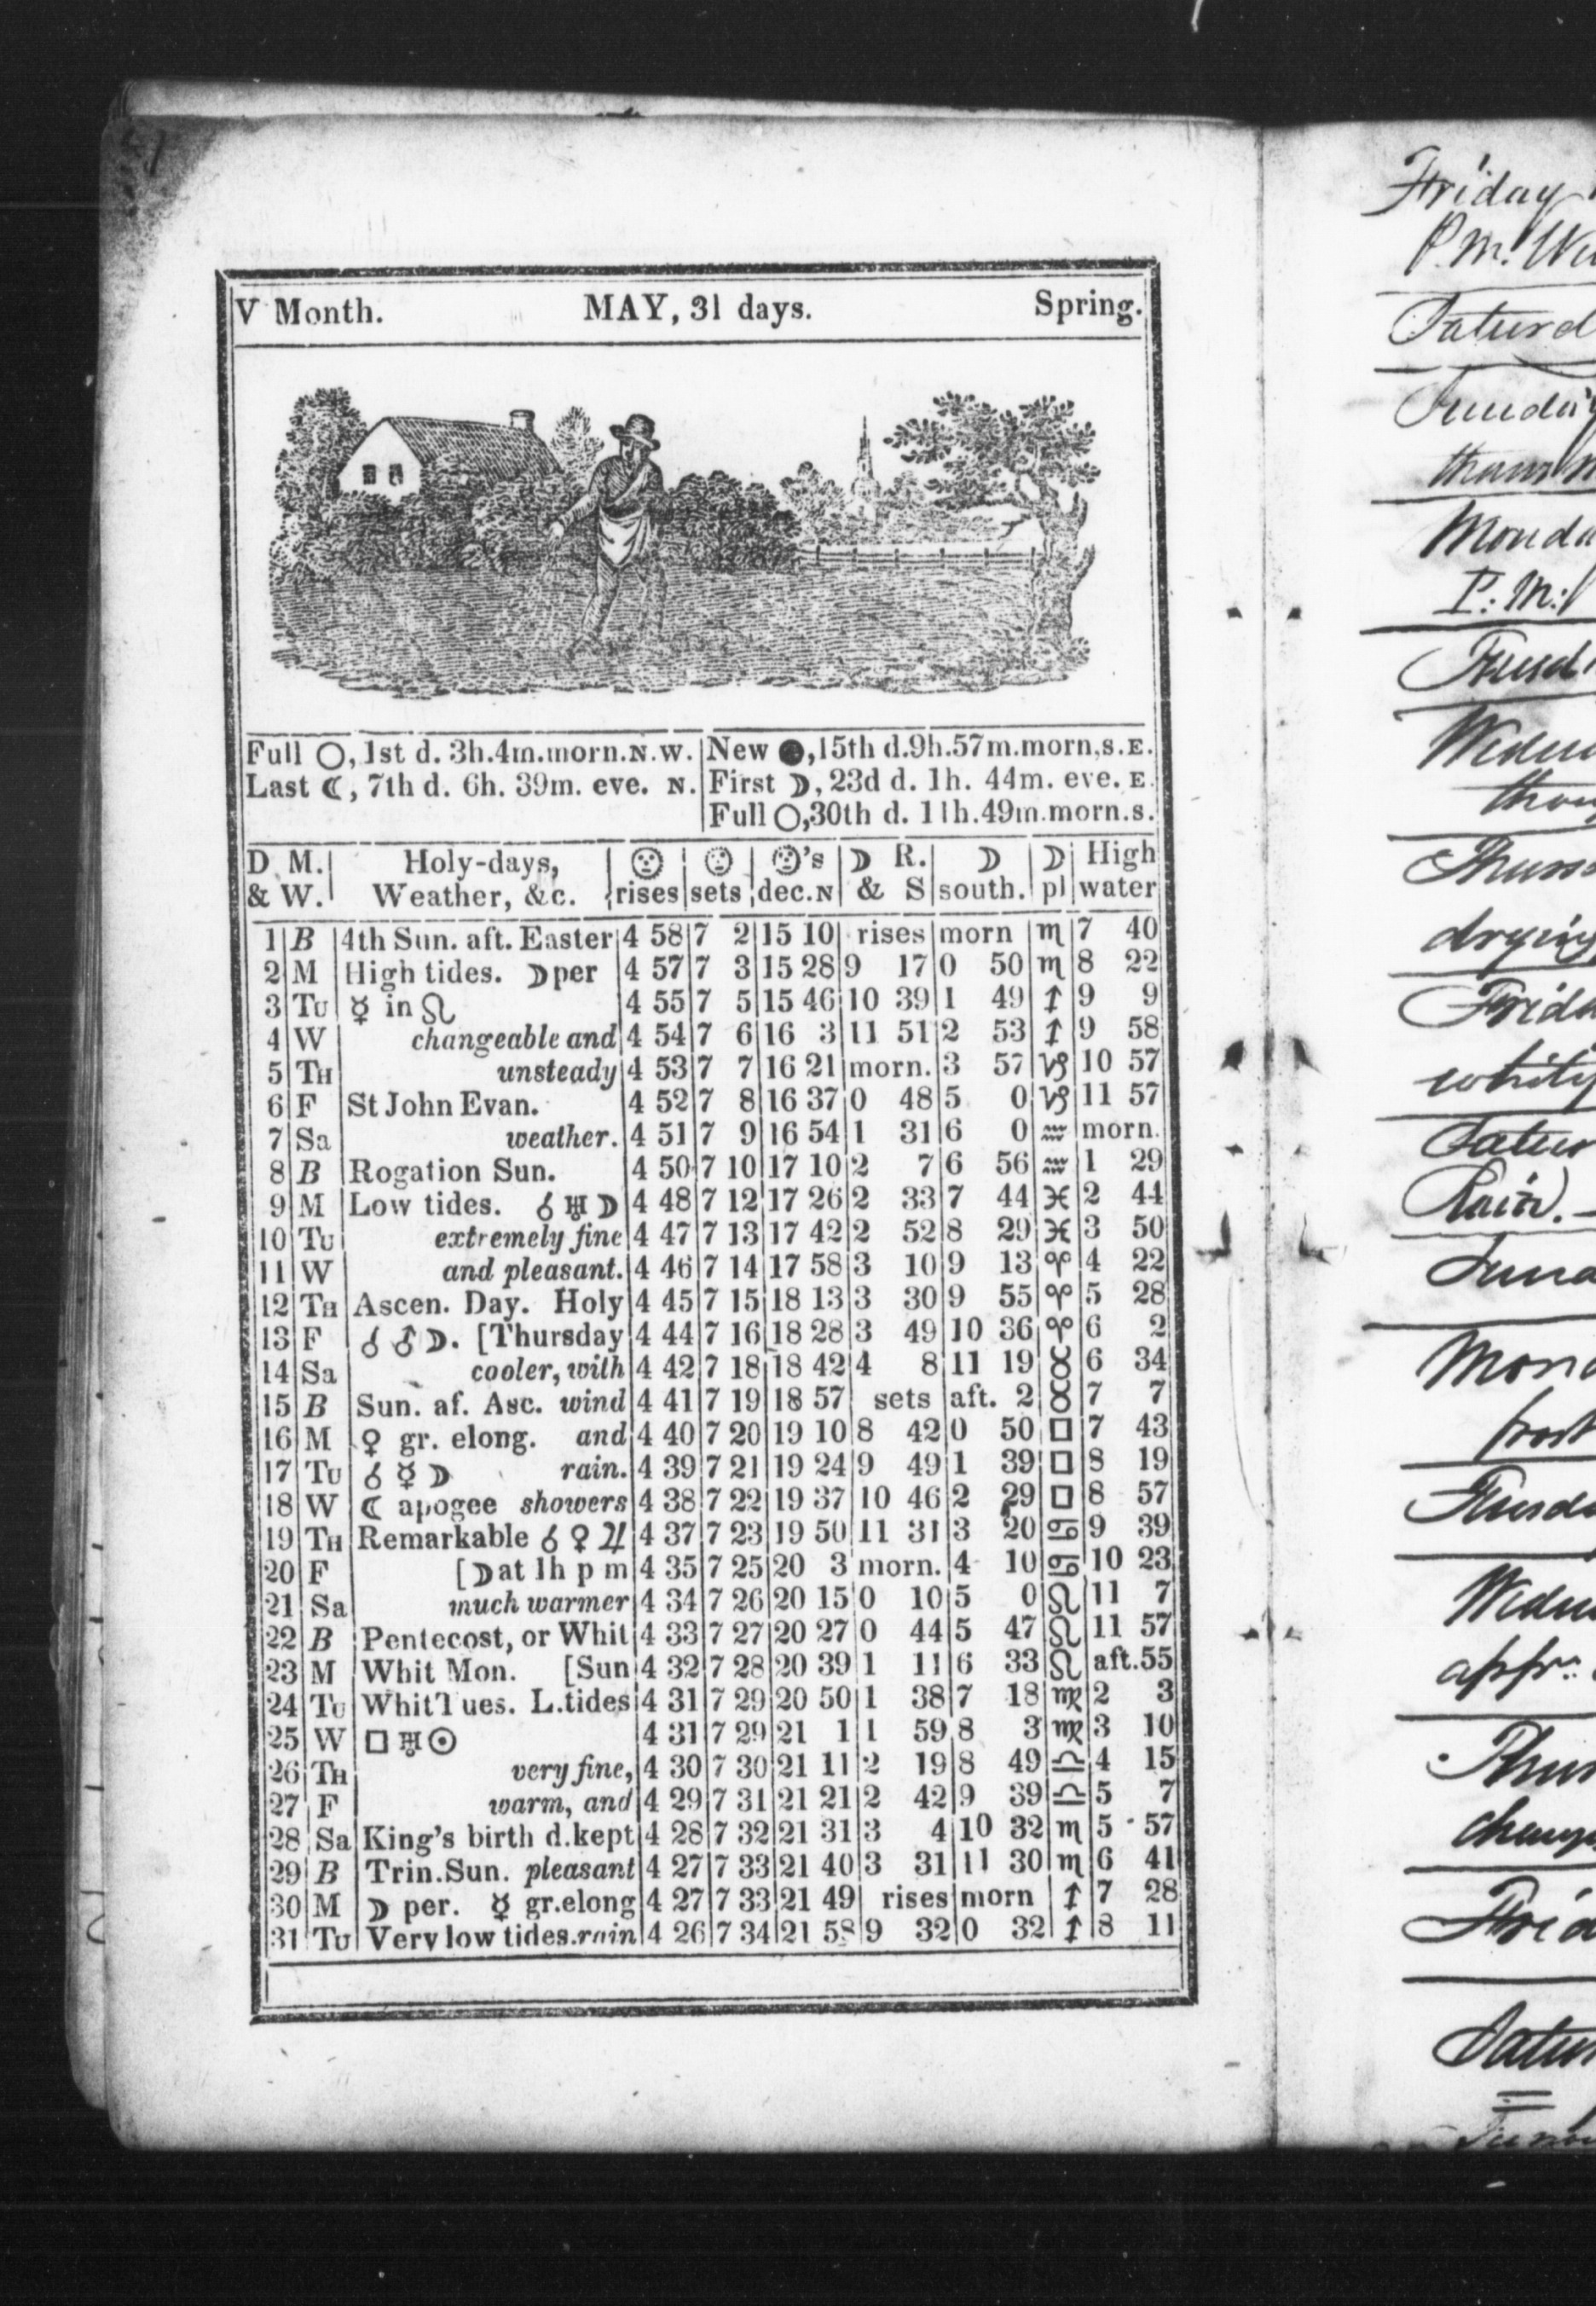 V Month. MAY, 31 days. Spring.
Full ○, 1st d. 3h.4m.morn.N.W.
Last ☾, 7th d. 6h. 39m. eve. N.
New ●,15th d.9h.57m.morn,S.E.
First ☽, 23d d. 1h. 44m. eve. E.
Full ○,30th d. 11h.49m.morn.S.
D. M. Holy-days, ☉ ☉ ☉'s ☽ R. ☽ ☽ High
& W. Weather, &c. rises sets dec.N & S south. pl water
1 B 4th Sun. aft. Easter 4 58 7 2 15 10 rises morn ♏ 7 40
2 M High tides. ☽ per 4 57 7 3 15 28 9 17 0 50 ♏ 8 22
3 TU ☿ in ☊ 4 55 7 5 15 46 10 39 1 49 ♐ 9 9
4 W changeable and 4 54 7 6 16 3 11 51 2 53 ♐ 9 58
5 TH unsteady 4 53 7 7 16 21 morn. 3 57 ♑ 10 57
6 F St John Evan. 4 52 7 8 16 37 0 48 5 0 ♑ 11 57
7 Sa weather. 4 51 7 9 16 54 1 31 6 0 ♒ morn.
8 B Rogation Sun. 4 50 7 10 17 10 2 7 6 56 ♒ 1 29
9 M Low tides. ☌ ♅ ☽ 4 48 7 12 17 26 2 33 7 44 ♓ 2 44
10 TU extremely fine 4 47 7 13 17 42 2 52 8 29 ♓ 3 50
11 W and pleasant. 4 46 7 14 17 58 3 10 9 13 ♈ 4 22
12 TH Ascen. Day. Holy 4 45 7 15 18 13 3 30 9 55 ♈ 5 28
13 F ☌ ♂ ☽. [Thursday 4 44 7 16 18 28 3 49 10 36 ♈ 6 2
14 Sa cooler, with 4 42 7 18 18 42 4 8 11 19 ♉ 6 34
15 B Sun. af. Asc. wind 4 41 7 19 18 57 sets aft. 2 ♉ 7 7
16 M ♀ gr. elong. and 4 40 7 20 19 10 8 42 0 50 □ 7 43
17 TU ☌ ☿ ☽ rain. 4 39 7 21 19 24 9 49 1 39 □ 8 19
18 W ☾ apogee showers 4 38 7 22 19 37 10 46 2 29 □ 8 57
19 TH Remarkable ☌ ♀ ♃ 4 37 7 23 19 50 11 31 3 20 ♋ 9 39
20 F [☽ at 1h p m 4 35 7 25 20 3 morn. 4 10 ♋ 10 23
21 Sa much warmer 4 34 7 26 20 15 0 10 5 0 ♌ 11 7
22 B Pentecost, or Whit 4 33 7 27 20 27 0 44 5 47 ♌ 11 57
23 M Whit Mon. [Sun 4 32 7 28 20 39 1 11 6 33 ♌ aft.55
24 TU Whit Tues. L.tides 4 31 7 29 20 50 1 38 7 18 ♍ 2 3
25 W □ ♅ ☉ 4 31 7 29 21 1 1 59 8 3 ♍ 3 10
26 TH very fine, 4 30 7 30 21 11 2 19 8 49 ♎ 4 15
27 F warm, and 4 29 7 31 21 21 2 42 9 39 ♎ 5 7
28 Sa King's birth d.kept 4 28 7 32 21 31 3 4 10 32 ♏ 5 57
29 B Trin.Sun. pleasant 4 27 7 33 21 40 3 31 11 30 ♏ 6 41
30 M ☽ per. ☿ gr.elong 4 27 7 33 21 49 rises morn ♐ 7 28
31 TU Very low tides.rain 4 26 7 34 21 58 9 32 0 32 ♐ 8 11
Friday
P.M.
Saturd
Sunday
Monda
P.M.
Wednes
drying
Frida
Satur
Rain.
Mond
frost
Wednes
Frid
Satur